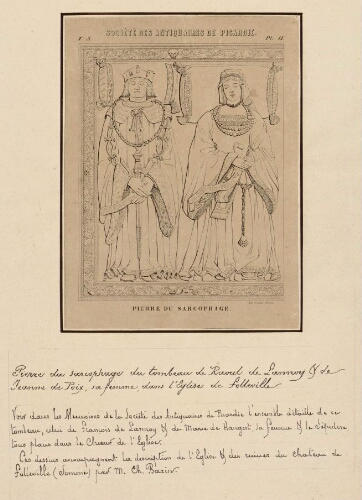 SOCIÉTÉ DES ANTIQUAIRES DE PICARDIE.
T. 5. Pl. II
PIERRE DU SARCOPHAGE.
Pierre du sarcophage du tombeau de Raoul de Lannoy & de
Jeanne de Poix, sa femme dans l'Eglise de Folleville
Voir dans les Memoires de la Société des Antiquaires de Picardie l'ensemble détaillé de ce
tombeau, celui de François de Lannoy & de Marie de Hangest sa femme & le sépulcre
tous placés dans le Choeur de l'Eglise.
Ces dessins accompagnent la description de l'Eglise & des ruines du chateau de
Folleville (Somme) par M. Ch. Bazin.